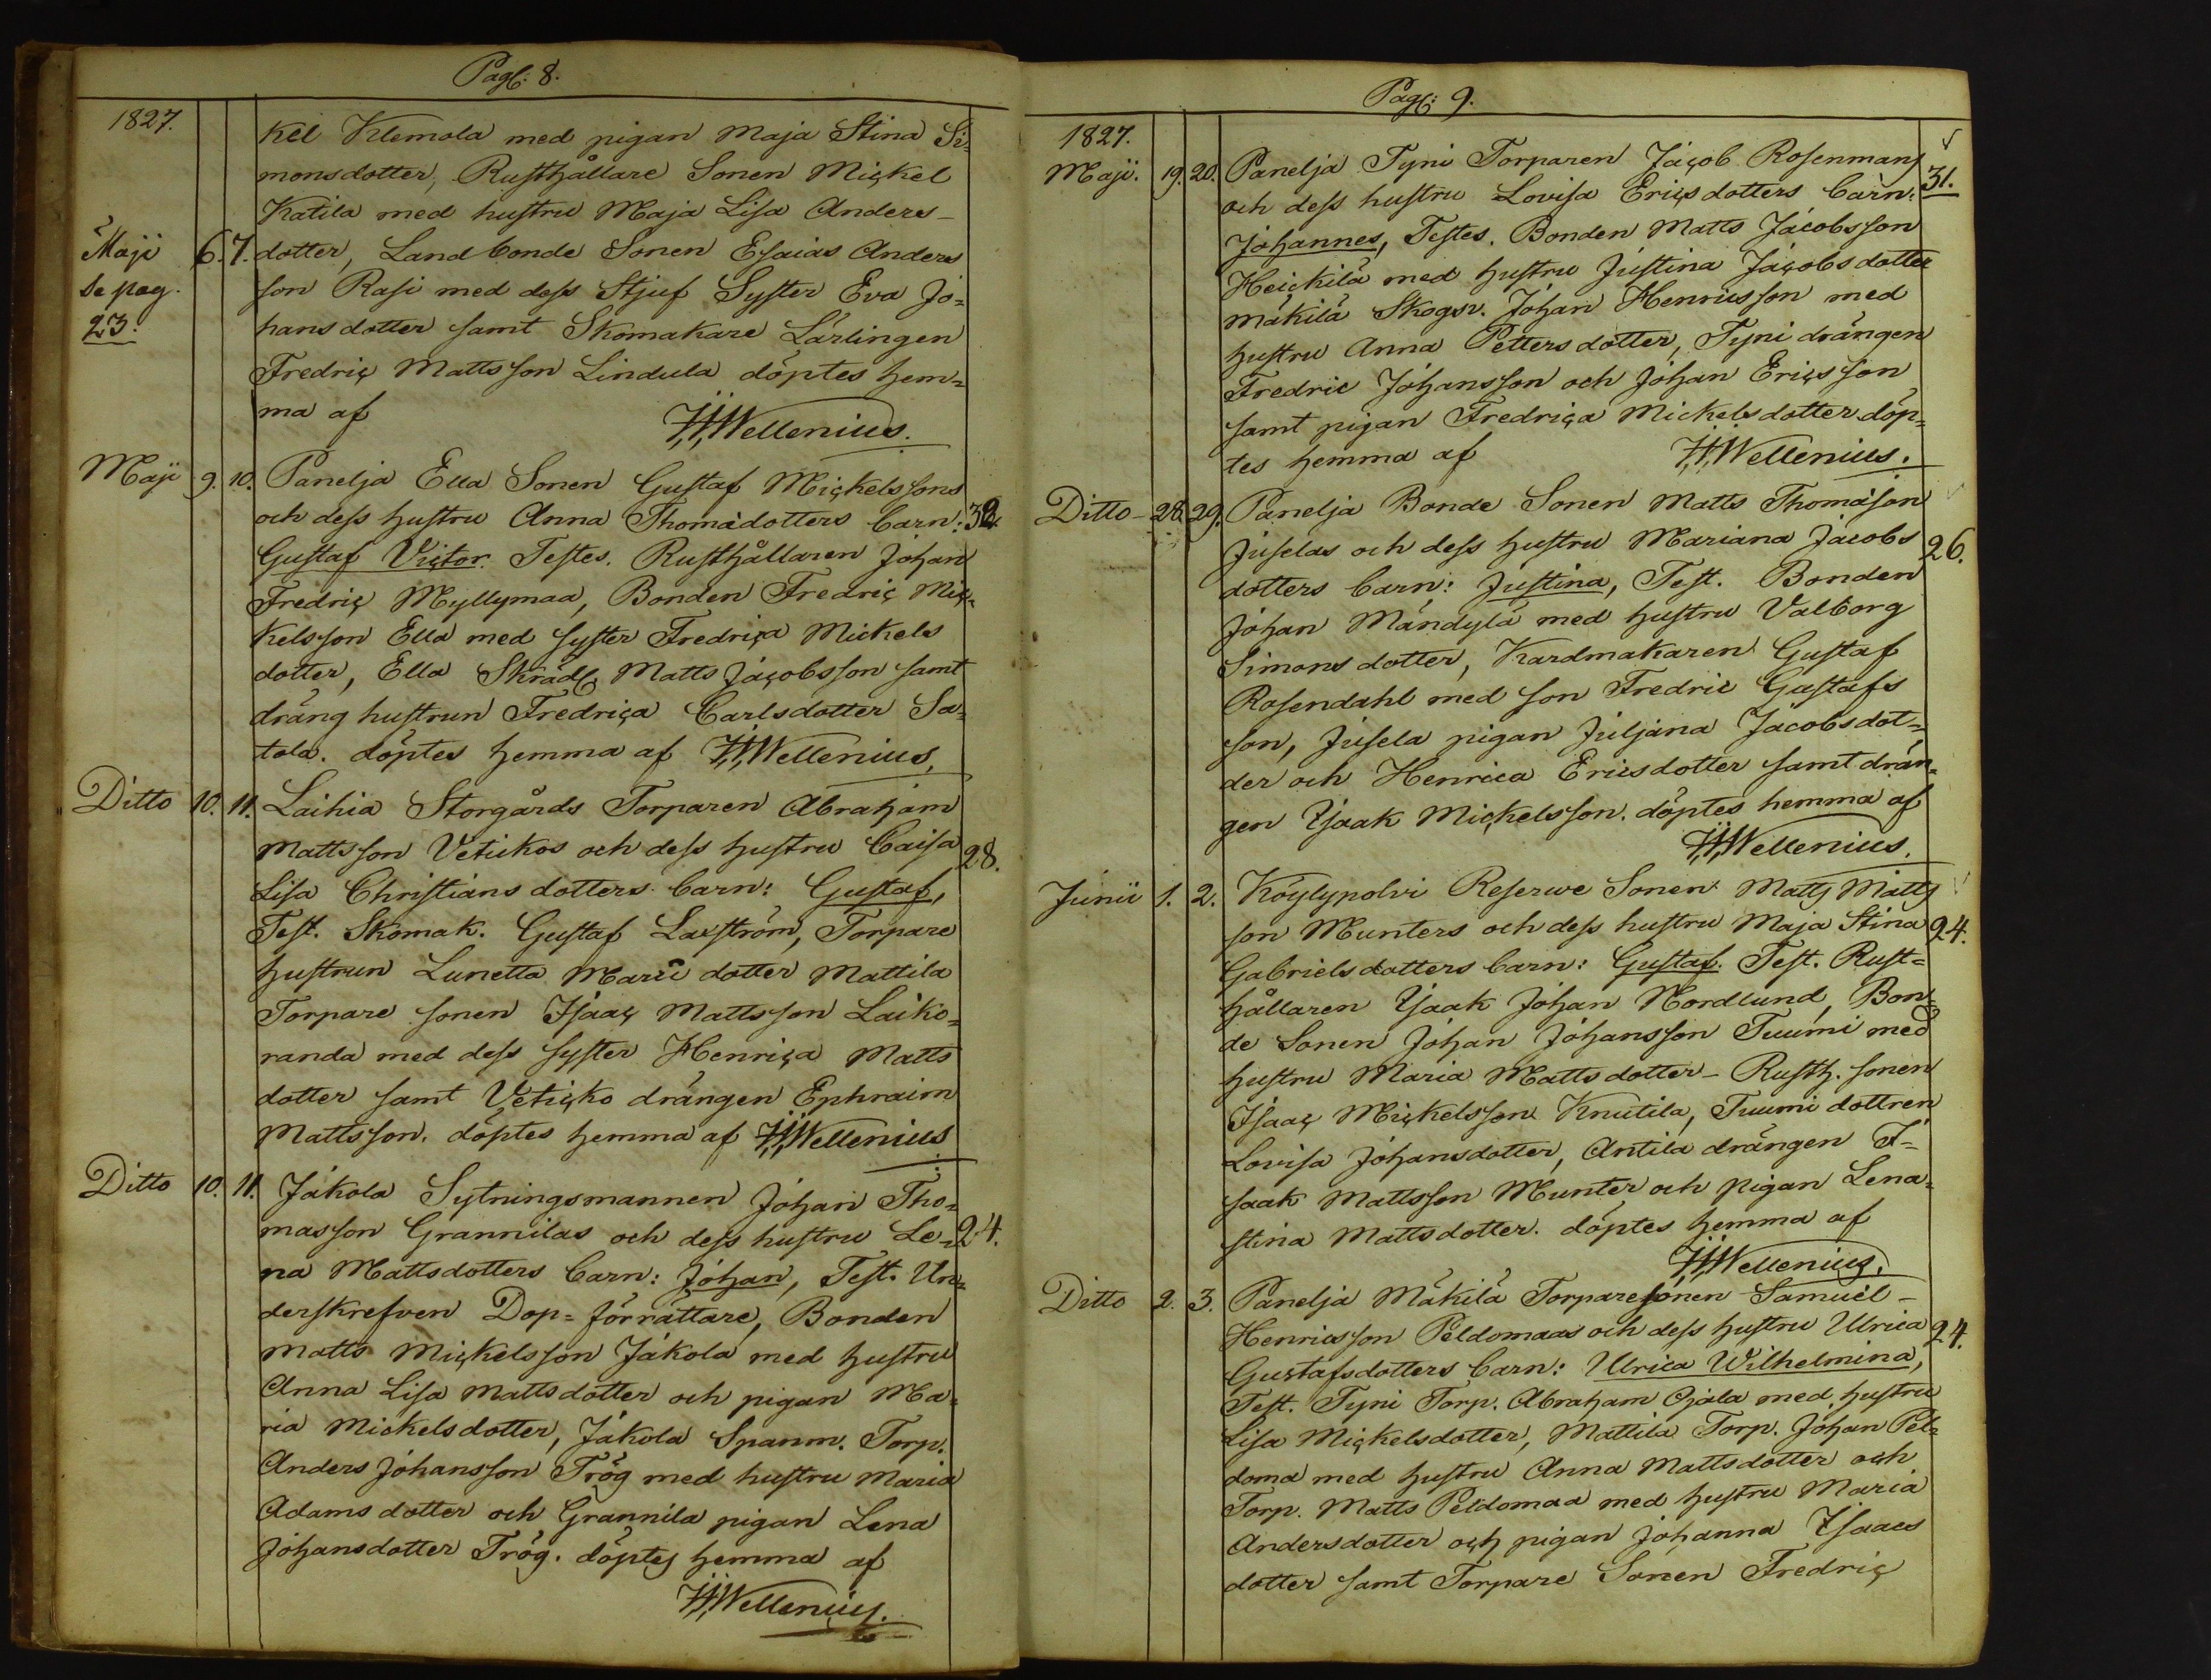 Pag: 8.
1827.
kel Klemola med pigan Maja Stina Si=
monsdotter, Rusthållare Sonen Mickel
Katila med hustru Maja Lisa Anders-
Maji 6. 7. dotter, Landbonde Sonen Esaias Anders
Se pag. son Rasi med dess Stjuf Syster Eva Jo=
23. hansdotter samt Skomakare Lärlingen
Fredric Mattsson Lindula döptes hem=
ma af Wellenius.
Maji 9. 10. Panelja Ella Sonen Gustaf Mickelssons
och dess hustru Anna Thomædotters barn: 32.
Gustaf Victor. Testes. Rusthållaren Johan
Fredric Myllymaa, Bonden Fredric Mic=
kelsson Ella med syster Fredrica Mickels
dotter, Ella Skrädd. Matts Jacobsson samt
dräng hustrun Fredrica Carlsdotter Sa=
tola. döptes hemma af Wellenius.
Ditto 10. 11. Laihia Storgårds Torparen Abraham
Mattsson Vetickos och dess hustru Caisa 28.
Lisa Christians dotters barn: Gustaf,
Test. Skomak. Gustaf Laxström, Torpare
hustrun Lunetta Marii dotter Mattila
Torpare sonen Isaac Mattsson Laiko=
randa med dess syster Henrica Matts
dotter samt Veticko drängen Ephraim
Mattsson. döptes hemma af Wellenius
Ditto 10. 11. Jakola Sytningsmannen Johan Tho=
masson Grannilas och dess hustru Le= 24.
na Mattsdotters barn: Johan, Test. Un=
derskrefven Dop=förrättare, Bonden
Matts Mickelsson Jakola med hustru
Anna Lisa Mattsdotter och pigan Ma=
ria Mickelsdotter, Jakola Spanm. Torp.
Anders Johansson Trög med hustru Maria
Adams dotter och Grannila pigan Lena
Johansdotter Trög. döptes hemma af
Wellenius.
Pag: 9.
1827.
Maji. 19. 20. Panelja Tyni Torparen Jacob Rosenmans
och dess hustru Lovisa Ericsdotters barn: 31.
Johannes, Testes. Bonden Matts Jacobsson
Heickilä med hustru Justina Jacobsdotter
Mäkilä Skogsv. Johan Henricsson med
hustru Anna Pettersdotter, Tyni drängen
Fredric Johansson och Johan Ericsson
samt pigan Fredrica Mickelsdotter. döp=
tes hemma af Wellenius.
Ditto 28. 29. Panelja Bonde Sonen Matts Thomæson
Juselas och dess hustru Mariana Jacobs 26.
dotters barn: Justina, Test. Bonden
Johan Mändylä med hustru Valborg
Simons dotter, Kardmakaren Gustaf
Rosendahl med son Fredric Gustafs
son, Jusela pigan Juljana Jacobsdot=
der och Henrica Ericsdotter samt drän=
gen Isaak Mickelsson. döptes hemma af
Wellenius.
Junii 1. 2. Köylypolvi Reserwe Sonen Matts Matts
son Munters och dess hustru Maja Stina 24.
Gabrielsdotters barn: Gustaf. Test. Rust=
hållaren Isaak Johan Nordlund, Bon=
de Sonen Johan Johansson Tuumi med
hustru Maria Mattsdotter - Rusth. sonen
Isaac Mickelsson Knutila, Tuumi dottren
Lovisa Johansdotter, Antila drängen I=
saak Mattsson Munter och pigan Lena=
stina Mattsdotter. döptes hemma af
Wellenius.
Ditto 2. 3. Panelja Mäkilä Torparesonen Samuel -
Henricsson Peldomaas och dess hustru Ulrica 24.
Gustafsdotters barn: Ulrica Wilhelmina,
Test. Tyni Torp. Abraham Ojala med hustru
Lisa Mickelsdotter, Mattila Torp. Johan Pel=
doma med hustru Anna Mattsdotter och
Torp. Matts Peldomaa med hustru Maria
Andersdotter och pigan Johanna Isaacs
dotter samt Torpare Sonen Fredric